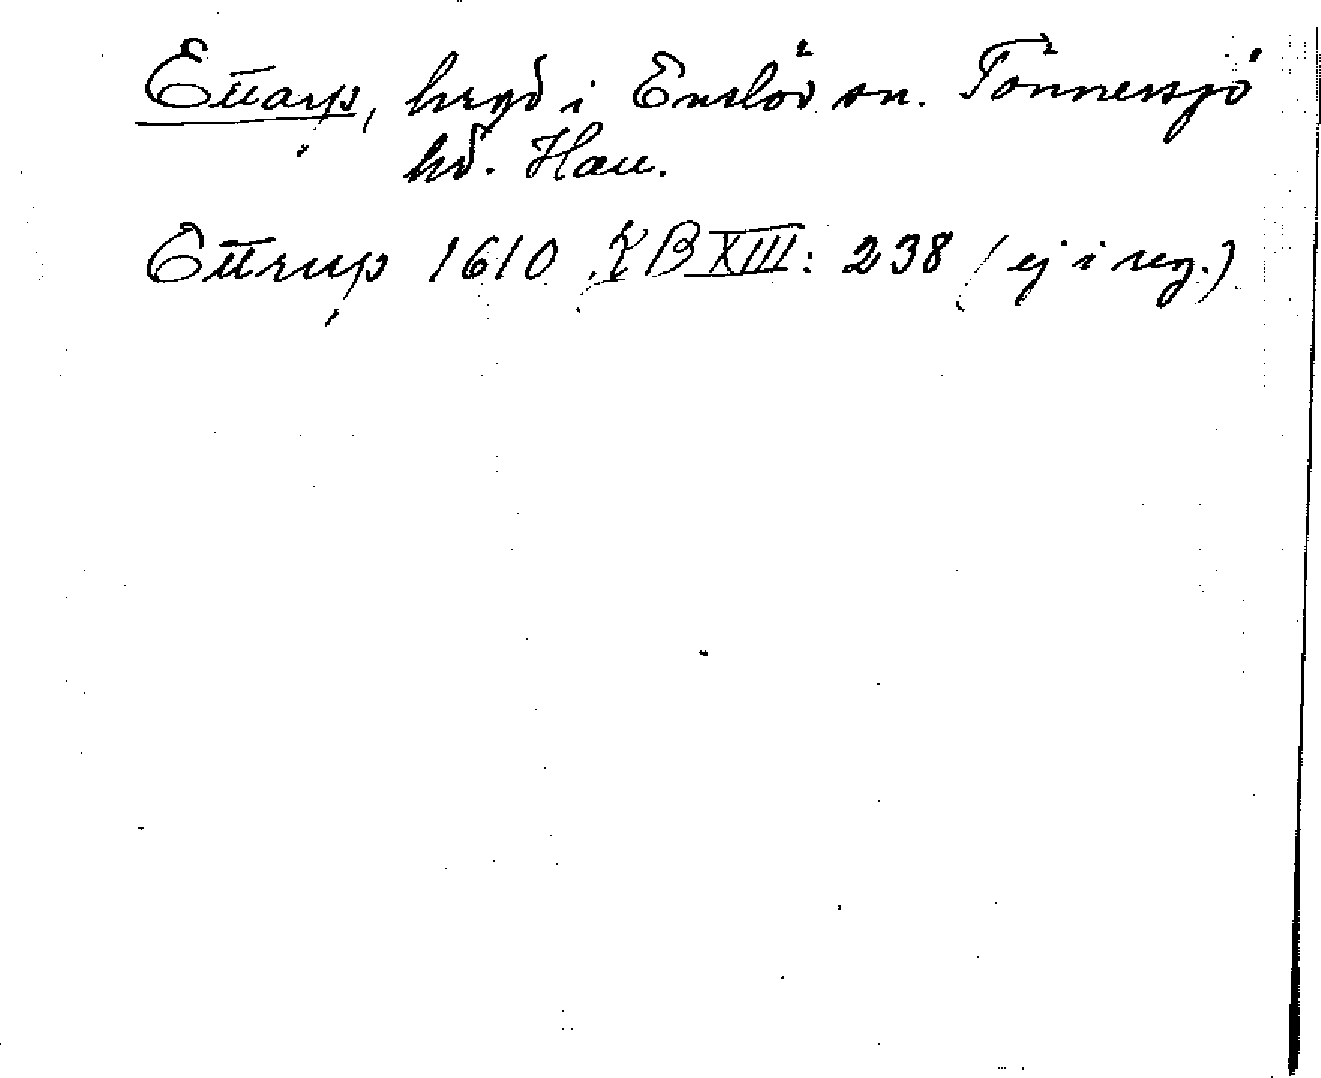 Ettarp, bygd i Enslöv sn. Tönnersjö
hd. Hall.
Ettrup 1610 KB XIII: 238 (ej i reg.)